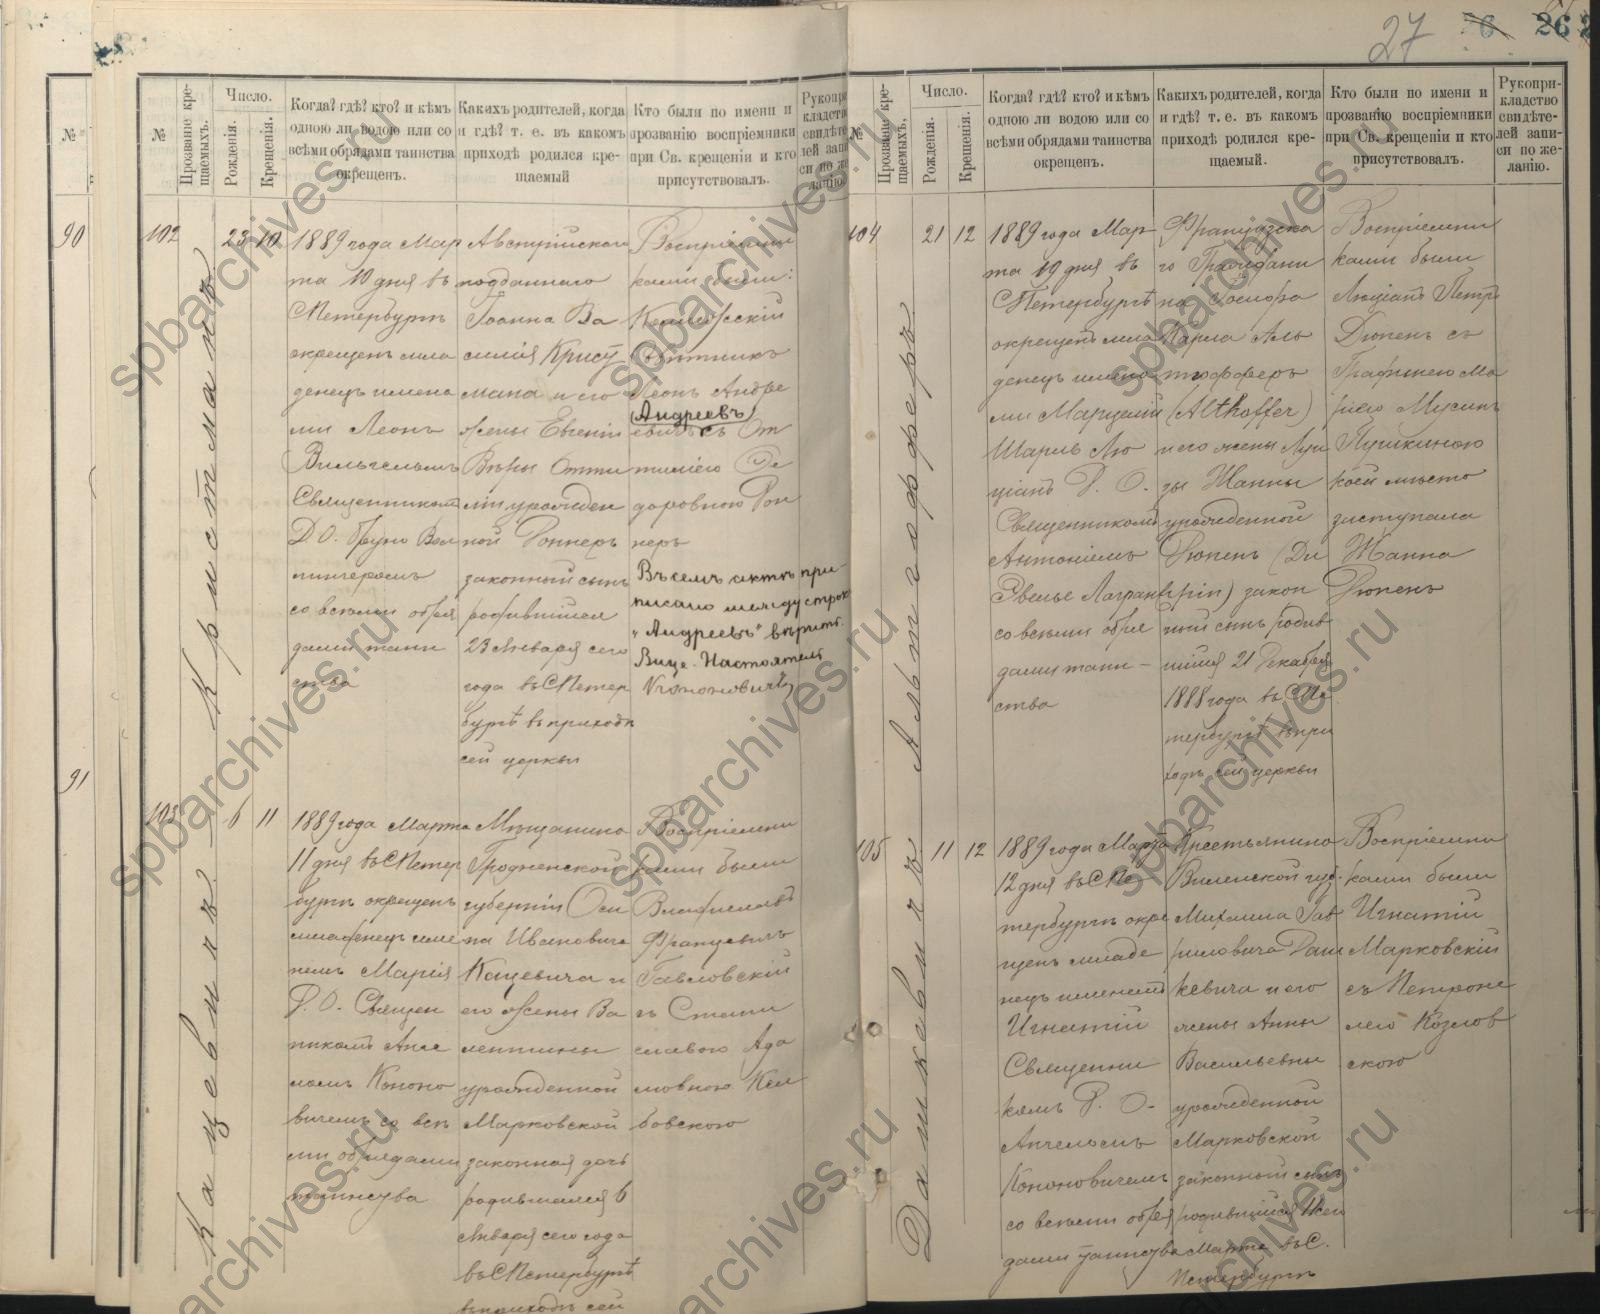 27
26
№
90
91
№
Прозваніе кре-
щаемыхъ.
Число.
Рожденія.
Крещенія.
Когда? гдѣ? кто? и кѣмъ
одною ли водою или со
всѣми обрядами таинства
окрещенъ.
Какихъ родителей, когда
и гдѣ? т. е. въ какомъ
приходѣ родился кре-
щаемый
Кто были по имени и
прозванію воспріемники
при Св. крещеніи и кто
присутствовалъ.
102
Кристманъ
23
10
1889 года Мар
та 10 дня въ
СПетербургѣ
окрещенъ мла
денецъ имена
ми Леонъ
Вильгельмъ
Священникомъ
Д. О. Бруно
со всѣми обря
дами таин
ства
Австрійскаго
подданнаго
Іоанна Ва
силія Крист
мана и его
жены Евгеніи
Вѣры Отти
ліи урожден
ной Роннеръ
законный сынъ
родившійся
23 Января сего
года въ СПетер
бургѣ въ приходѣ
сей церкви
Воспріемни
ками были:
Коллежскій
Совѣтникъ
Леонъ Андре
(Андреевъ)
евичъ съ От
тиліею Ѳе
доровною Рон
неръ
Въ семъ актѣ при-
писано между строкъ
„Андреевъ" вѣрить.
Вице-Настоятель
Кононовичъ
103
Кацевичъ
6
11
1889 года Марта
11 дня въ СПетер
бургѣ окрещенъ
младенецъ име
немъ Марія
Р. О. Священ
никомъ Анге
ломъ Кононо
вичемъ со всѣ
ми обрядами
таинства
Мѣщанина
Гродненской
губерніи Оси
па Ивановича
Кацевича и
его жены Ва
лентины
урожденной
Марковской
законная дочь
родившаяся 6
Января сего года
въ СПетербургѣ
въ приходѣ сей
Воспріемни
ками были
Владиславъ
Францевичъ
Павловскій
съ Стани
славою Ада
мовною Кел
бовскою
№
Прозваніе кре-
щаемыхъ,
Число.
Рожденія.
Крещенія.
Когда? гдѣ? кто? и кѣмъ
одною ли водою или со
всѣми обрядами таинства
окрещенъ.
Какихъ родителей, когда
и гдѣ? т. е. въ какомъ
приходѣ родился кре-
щаемый.
Кто были по имени и
прозванію воспріемники
при Св. крещеніи и кто
присутствовалъ.
Рукопри-
кладство
свидѣте-
лей запи-
си по же-
ланію.
104
Альтгофферъ
21
12
1889 года Мар-
та 12 дня въ
СПетербургѣ
окрещенъ мла
денецъ имена
ми Марцелій
Шарль Лю
ціанъ Р. О.
Священникомъ
Антоніемъ
Лагранж
со всѣми обря
дами таин-
ства
Французска
го Граждани
на Іосифа
Карла Аль
тгофферъ
(Althoffer)
и его жены Луи
зы Жанны
урожденной
Дюпенъ (Du
pin) закон
ный сынъ родив
шійся 21 Декабря
1888 года въ СПе
тербургѣ въ при
ходѣ сей церкви
Воспріемни
ками были
Люціанъ Петръ
Дюпенъ съ
Графинею Ма
ріею Мусинъ
Пушкиною
коей мѣсто
заступала
Жанна
Дюпенъ
105
Дашкевичъ
11
12
1889 года Марта
12 дня въ СПе
тербургѣ окре
щенъ младе
нецъ именемъ
Игнатій
Священни
комъ Р. О.
Ангеломъ
Кононовичемъ
со всѣми обря
дами таинства
Крестьянина
Виленской губ.
Михаила Гав
риловича Даш
кевича и его
жены Анны
Васильевны
урожденной
Марковской
законный сынъ
родившійся 11 сего
Марта въ С.
Петербургѣ
Воспріемни
ками были
Игнатій
Марковскій
съ Петроне
лею Козлов
скою
spbarchives.ru